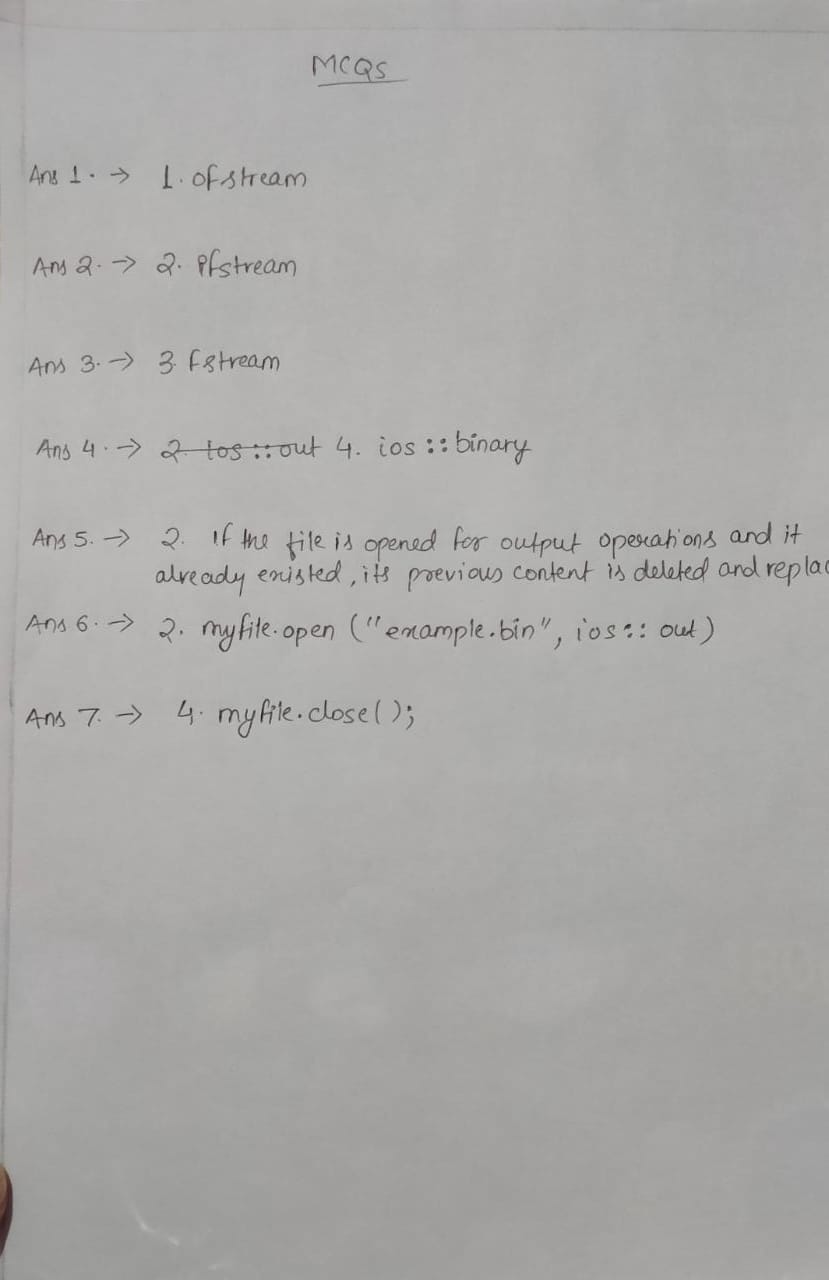 MCQS
Ans 1. → 1. ofstream
Ans 2. → 2. ifstream
Ans 3. → 3. fstream
Ans 4. → 2. ios::out 4. ios::binary
Ans 5. → 2. If the file is opened for output operations and it
already existed, its previous content is deleted and replac
Ans 6. → 2. myfile.open ("example.bin", ios:: out)
Ans 7. → 4. myfile.close();